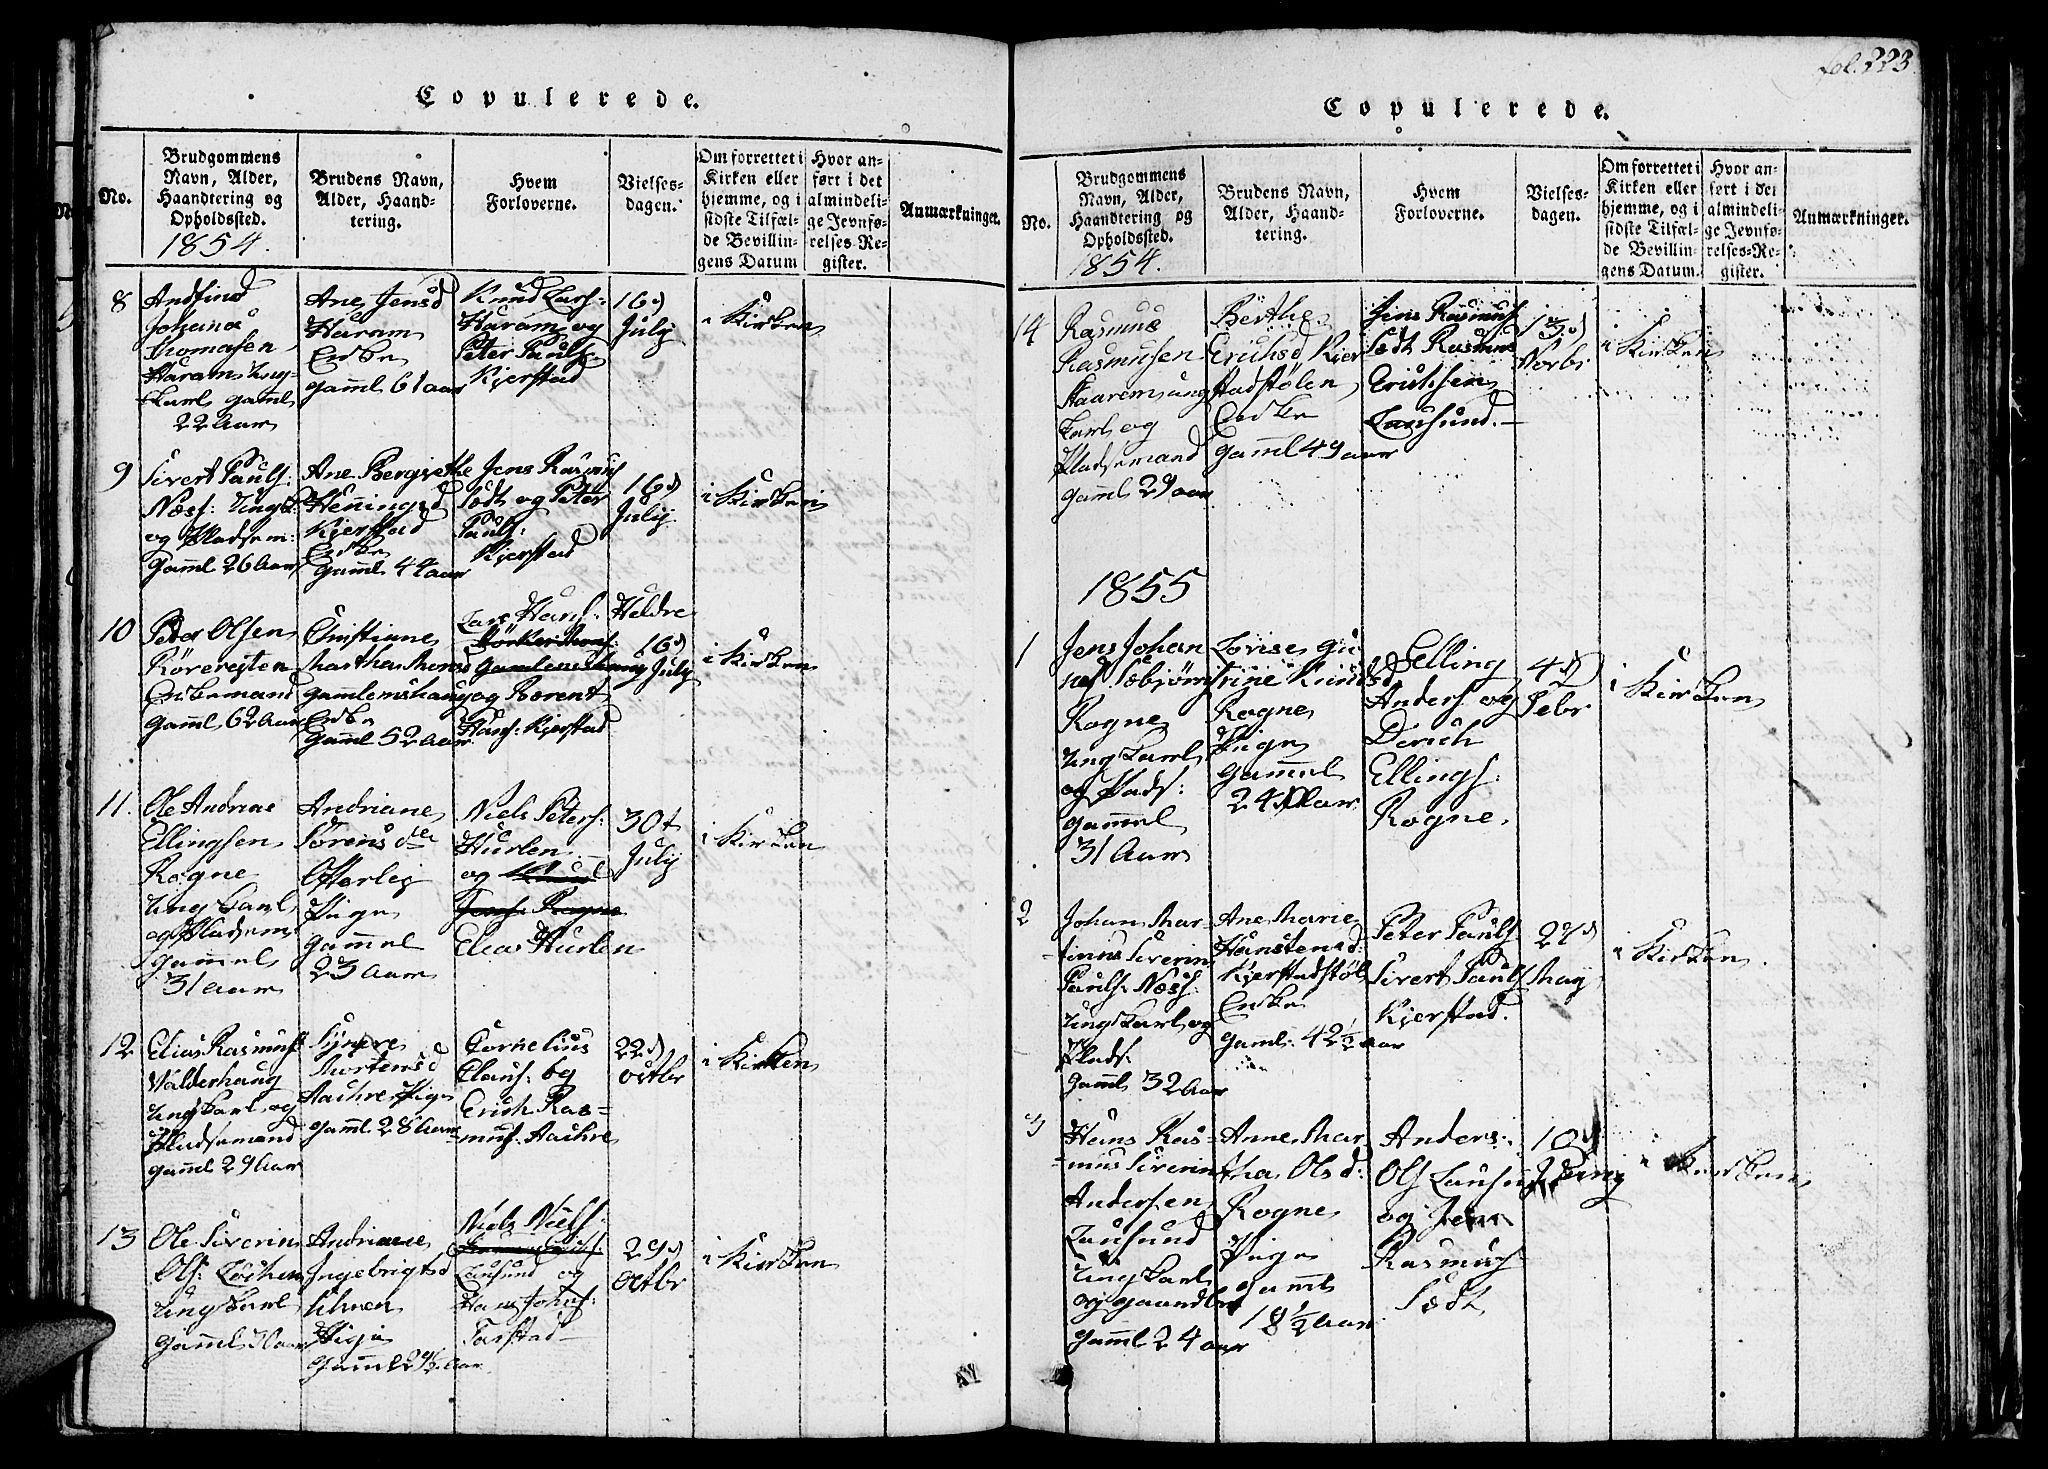 fol. 223
Copulerede.
No.
Brudgommens
Navn, Alder,
Haandtering og
Opholdssted.
1854.
Brudens Navn,
Alder, Haand-
tering.
Hvem
Forloverne.
Vielses-
dagen.
Om forrettet i
Kirken eller
hjemme, og i
sidste Tilfæl-
de Bevillin-
gens Datum
Hvor an-
ført i det
almindeli-
ge Jevnfø-
relses-Re-
gister.
Anmærkninger.
8
Johana
Thomasen
Haram Ung-
karl gaml
22 Aar
Ane Jensd
Haram
Enke
gaml 61 aar
Knud Lars:
Haram og
Peter Pauls
Kjerstad
16d
July
i Kirken
9
Sivert Pauls:
Næss: Ungk
og Pladsm:
Gaml 26 Aar
Ane Bergithe
Heningsd
Kjerstad
Enke
Gaml 44 aar
Jens Rasmus
Sædt og Peter
Pauls:
Kjerstad
16d
July
i Kirken
10
Peder Olsen
Enkemand
Gaml 62 Aar
Christiane
Martha Monsd
Gamlemshaug
Enke
Gaml 52 Aar
Lars Hans: Heldre
Gamlemshaug
og Berent
Hans: Kjerstad
16d
July
i Kirken
11.
Ole Andreas
Ellingsen
Rogne
Ungkarl
og Pladsm
Gammel
31 Aar
Andriane
Sørensd
Otterlei
Pige
Gammel
23 Aar
Niels Peters:
Hurlen
og Knud
Jons: Rogne
Elias Hurlen
30t
July
i Kirken
12
Elias Rasmuss
Valderhaug
Ungkarl og
Pladsemand
Gaml 29 Aar
Synere
Mortensd
Aachre Pige
gaml 28 Aar
Cornelius
Claus: og
Erich Ras-
mus: Aachre
22d
octbr
i Kirken
13
Ole Siverin
Ols: Lochen
Ungkarl
Andriane
Ingebrigtsd
Ulven
Pige
Niels Niels:
Lausund og
Hans Johas:
Tarstad
29d
Octbr
i Kirken
Copulerede.
No.
Brudgommens
Navn, Alder,
Haandtering og
Opholdssted.
1854.
Brudens Navn,
Alder, Haand-
tering.
Hvem
Forloverne.
Vielses-
dagen.
Om forrettet i
Kirken eller
hjemme, og i
sidste Tilfæl-
de Bevillin-
gens Datum.
Hvor an-
ført i det
almindeli-
ge Jevnfø-
relses-Re-
gister.
Anmærkninger.
14
Rasmus
Rasmusen
Staarem ung
karl og
Pladsemand
gaml 29 aar
Berthe
Erichsd Kjer
stadstølen
Enke
Gaml 49 aar
Jens Rasmus
Sædt Rasmus
Erichsen
Lausund.
Novbr
i Kirken
1855
1
Jens Johan
Rogne
Ungkarl
og Plads:
gammel
31 Aar
Lovise Gu
rine Knudsd
Rogne
Pige
gammel
24 Aar
Elling
Anders: og
Derich
Ellings:
Rogne
4d
Febr
i Kirken
2
Johan Mar
tinus Siverin
Pauls: Næss:
Ungkarl og
Plads:
Gaml 32 Aar
Ane Marie
Hanstensd:
Kjerstadstøl
Enke
Gaml: 42½ aar
Peter Pauls
Sivert Pauls
Kjerstad.
27d
May
i Kirken.
3
Hans Ras-
mus Siverin
Andersen
Lausund
Ungkarl
og gaardbr
gaml 24 aar
Anne Mar
tha Olsd:
Rogne
Pige
gaml
18½ Aar
Anders:
Ols Lausund
og Jens
Rasmus
Sædt
10d
i Kirken